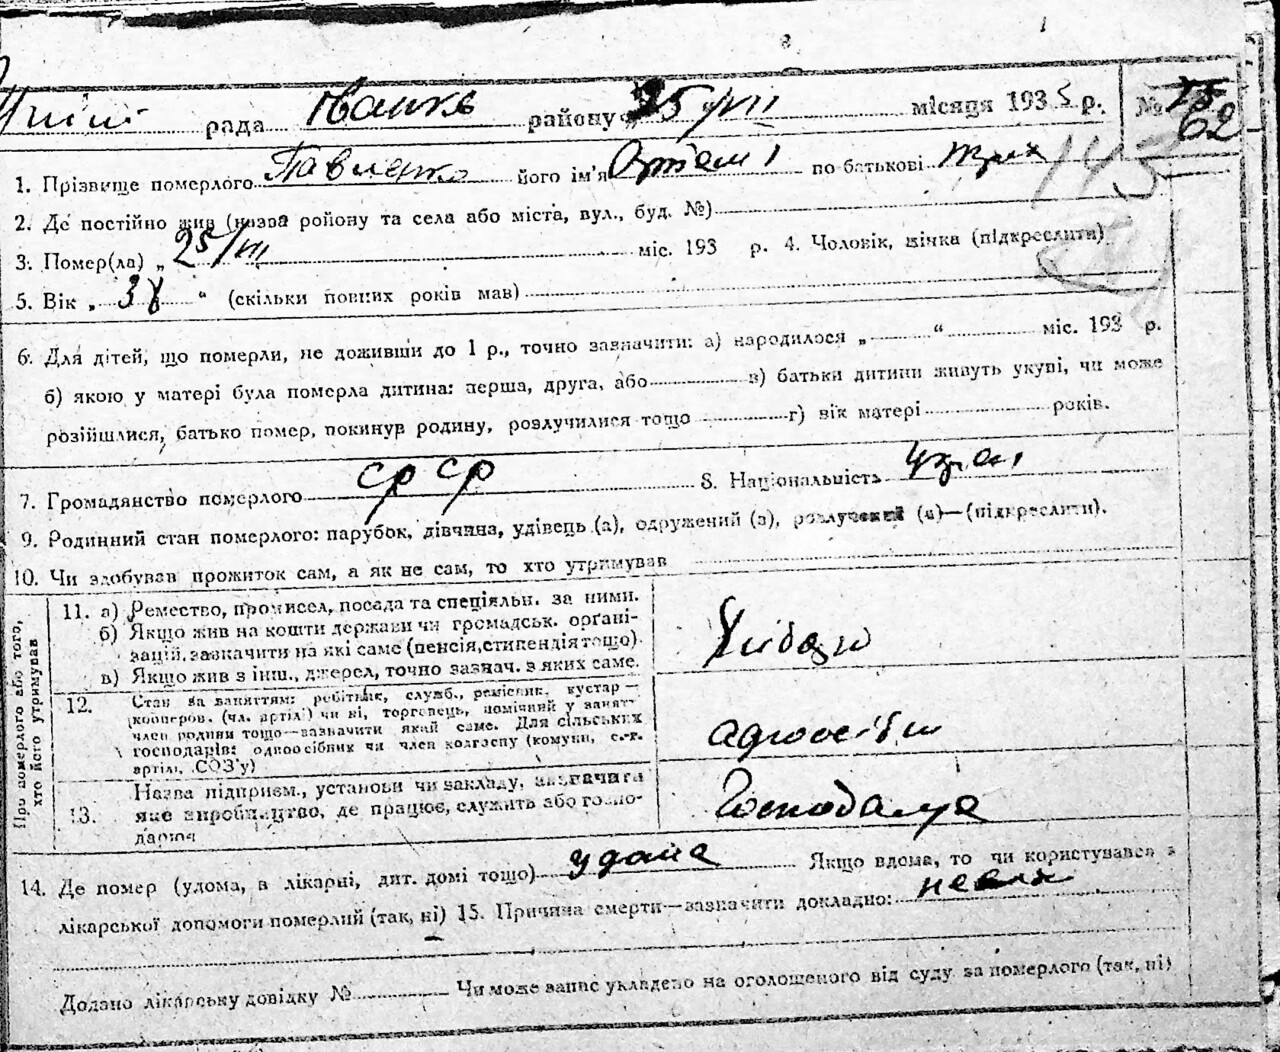 рада району 25/VII місяця 1933 р. № 62
1. Прізвище померлого Павленко його ім'я Артем по батькові
2. Де постійно жив (назва району та села або міста, вул., буд. №)
3. Помер(ла) „ 25/VII міс. 193 р. 4. Чоловік, жінка (підкреслити)
5. Вік „ 38 “ (скільки повних років мав)
6. Для дітей, що померли, не доживши до 1 р., точно зазначити: а) народилося „ “ міс. 193 р.
б) якою у матері була померла дитина: перша, друга, або в) батьки дитини живуть укупі, чи може
розійшлися, батько помер, покинув родину, розлучилися тощо г) вік матері років.
7. Громадянство померлого СРСР 8. Національність укр
9. Родинний стан померлого: парубок, дівчина, удівець (а), одружений (а), розлучений (а)—(підкреслити).
10. Чи здобував прожиток сам, а як не сам, то хто утримував
Про померлого або того, хто його утримував
11. а) Ремество, промисел, посада та спеціяльн. за ними.
б) Якщо жив на кошти держави чи громадськ. органі-
зацій, зазначити на які саме (пенсія, стипендія тощо)
в) Якщо жив з інш., джерел, точно зазнач. з яких саме.
12. Стан за заняттям: робітник, служб., ремісник, кустар —
кооперов. (чл. артілі) чи ні, торговець, помічний у занят-
член родини тощо—зазначити який саме. Для сільських
господарів: одноосібник чи член колгоспу (комуни, с.-г.
артілі, СОЗ'у)
13. Назва підприєм., установи чи закладу, зазначити
яке виробництво, де працює, служить або госпо-
дарює
14. Де помер (удома, в лікарні, дит. домі тощо) удома Якщо вдома, то чи користувався з
лікарської допомоги померлий (так, ні) 15. Причина смерти—зазначити докладно:
Додано лікарську довідку № Чи може запис укладено на оголошеного від суду за померлого (так, ні)